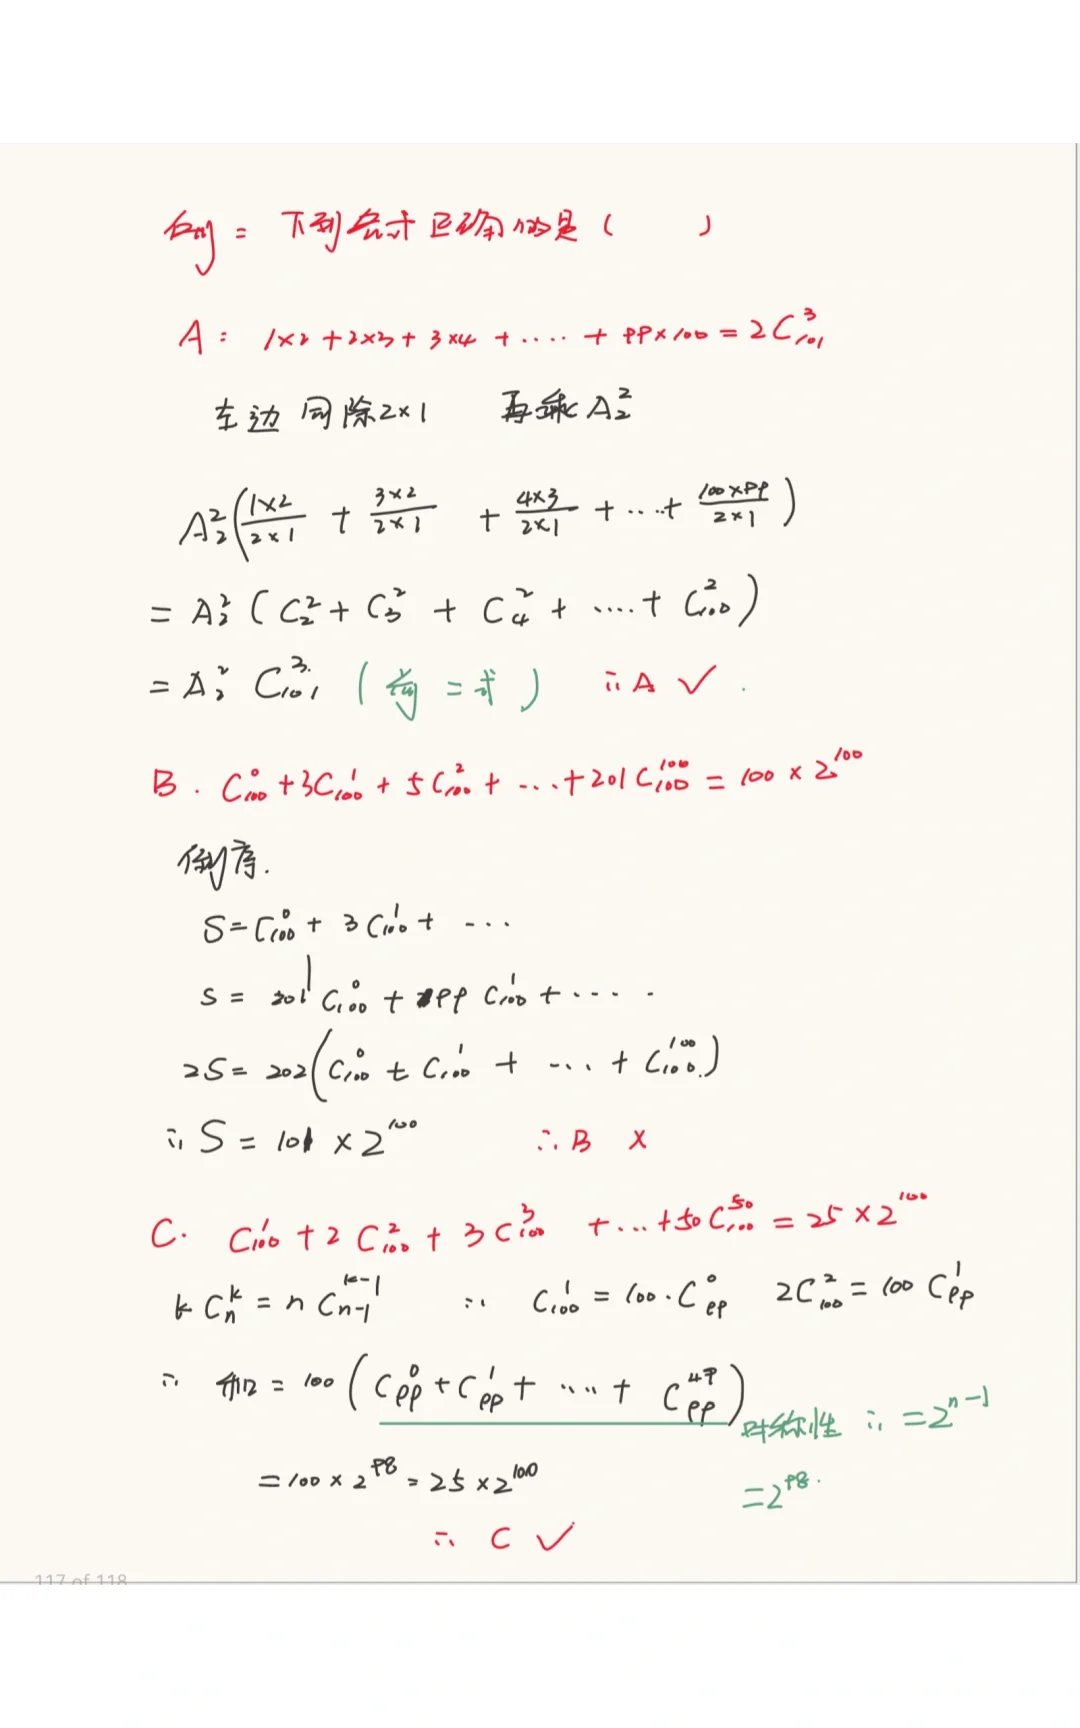 右例 = 下列各式正确的是 ( )
A: 1×2+2×3+3×4+....+99×100=2C₁₀₁³
左边 同除2×1 再乘A₂²
A₂²(1×2/2×1 + 3×2/2×1 + 4×3/2×1 +....+ 100×99/2×1)
= A₂²(C₂²+C₃²+C₄²+....+C₁₀₀²)
= A₂² C₁₀₁³ (二式) ∴A ✓.
B. C₁₀₀⁰+3C₁₀₀¹+5C₁₀₀²+...+201C₁₀₀¹⁰⁰=100×2¹⁰⁰
倒序.
S=C₁₀₀⁰+3C₁₀₀¹+...
S=201C₁₀₀⁰+199C₁₀₀¹+.....
2S=202(C₁₀₀⁰+C₁₀₀¹+...+C₁₀₀¹⁰⁰)
∴S=101×2¹⁰⁰ ∴B ×
C. C₁₀₀¹+2C₁₀₀²+3C₁₀₀³+...+50C₁₀₀⁵⁰=25×2¹⁰⁰
kCₙᵏ=nCₙ₋₁ᵏ⁻¹ ∴ C₁₀₀¹=100·C₉₉⁰ 2C₁₀₀²=100C₉₉¹
∴ 和=100(C₉₉⁰+C₉₉¹+....+C₉₉⁴⁹)
对称性 ∴=2ⁿ⁻¹
=100×2⁹⁸=25×2¹⁰⁰
=2⁹⁸.
∴ C ✓
117 of 118